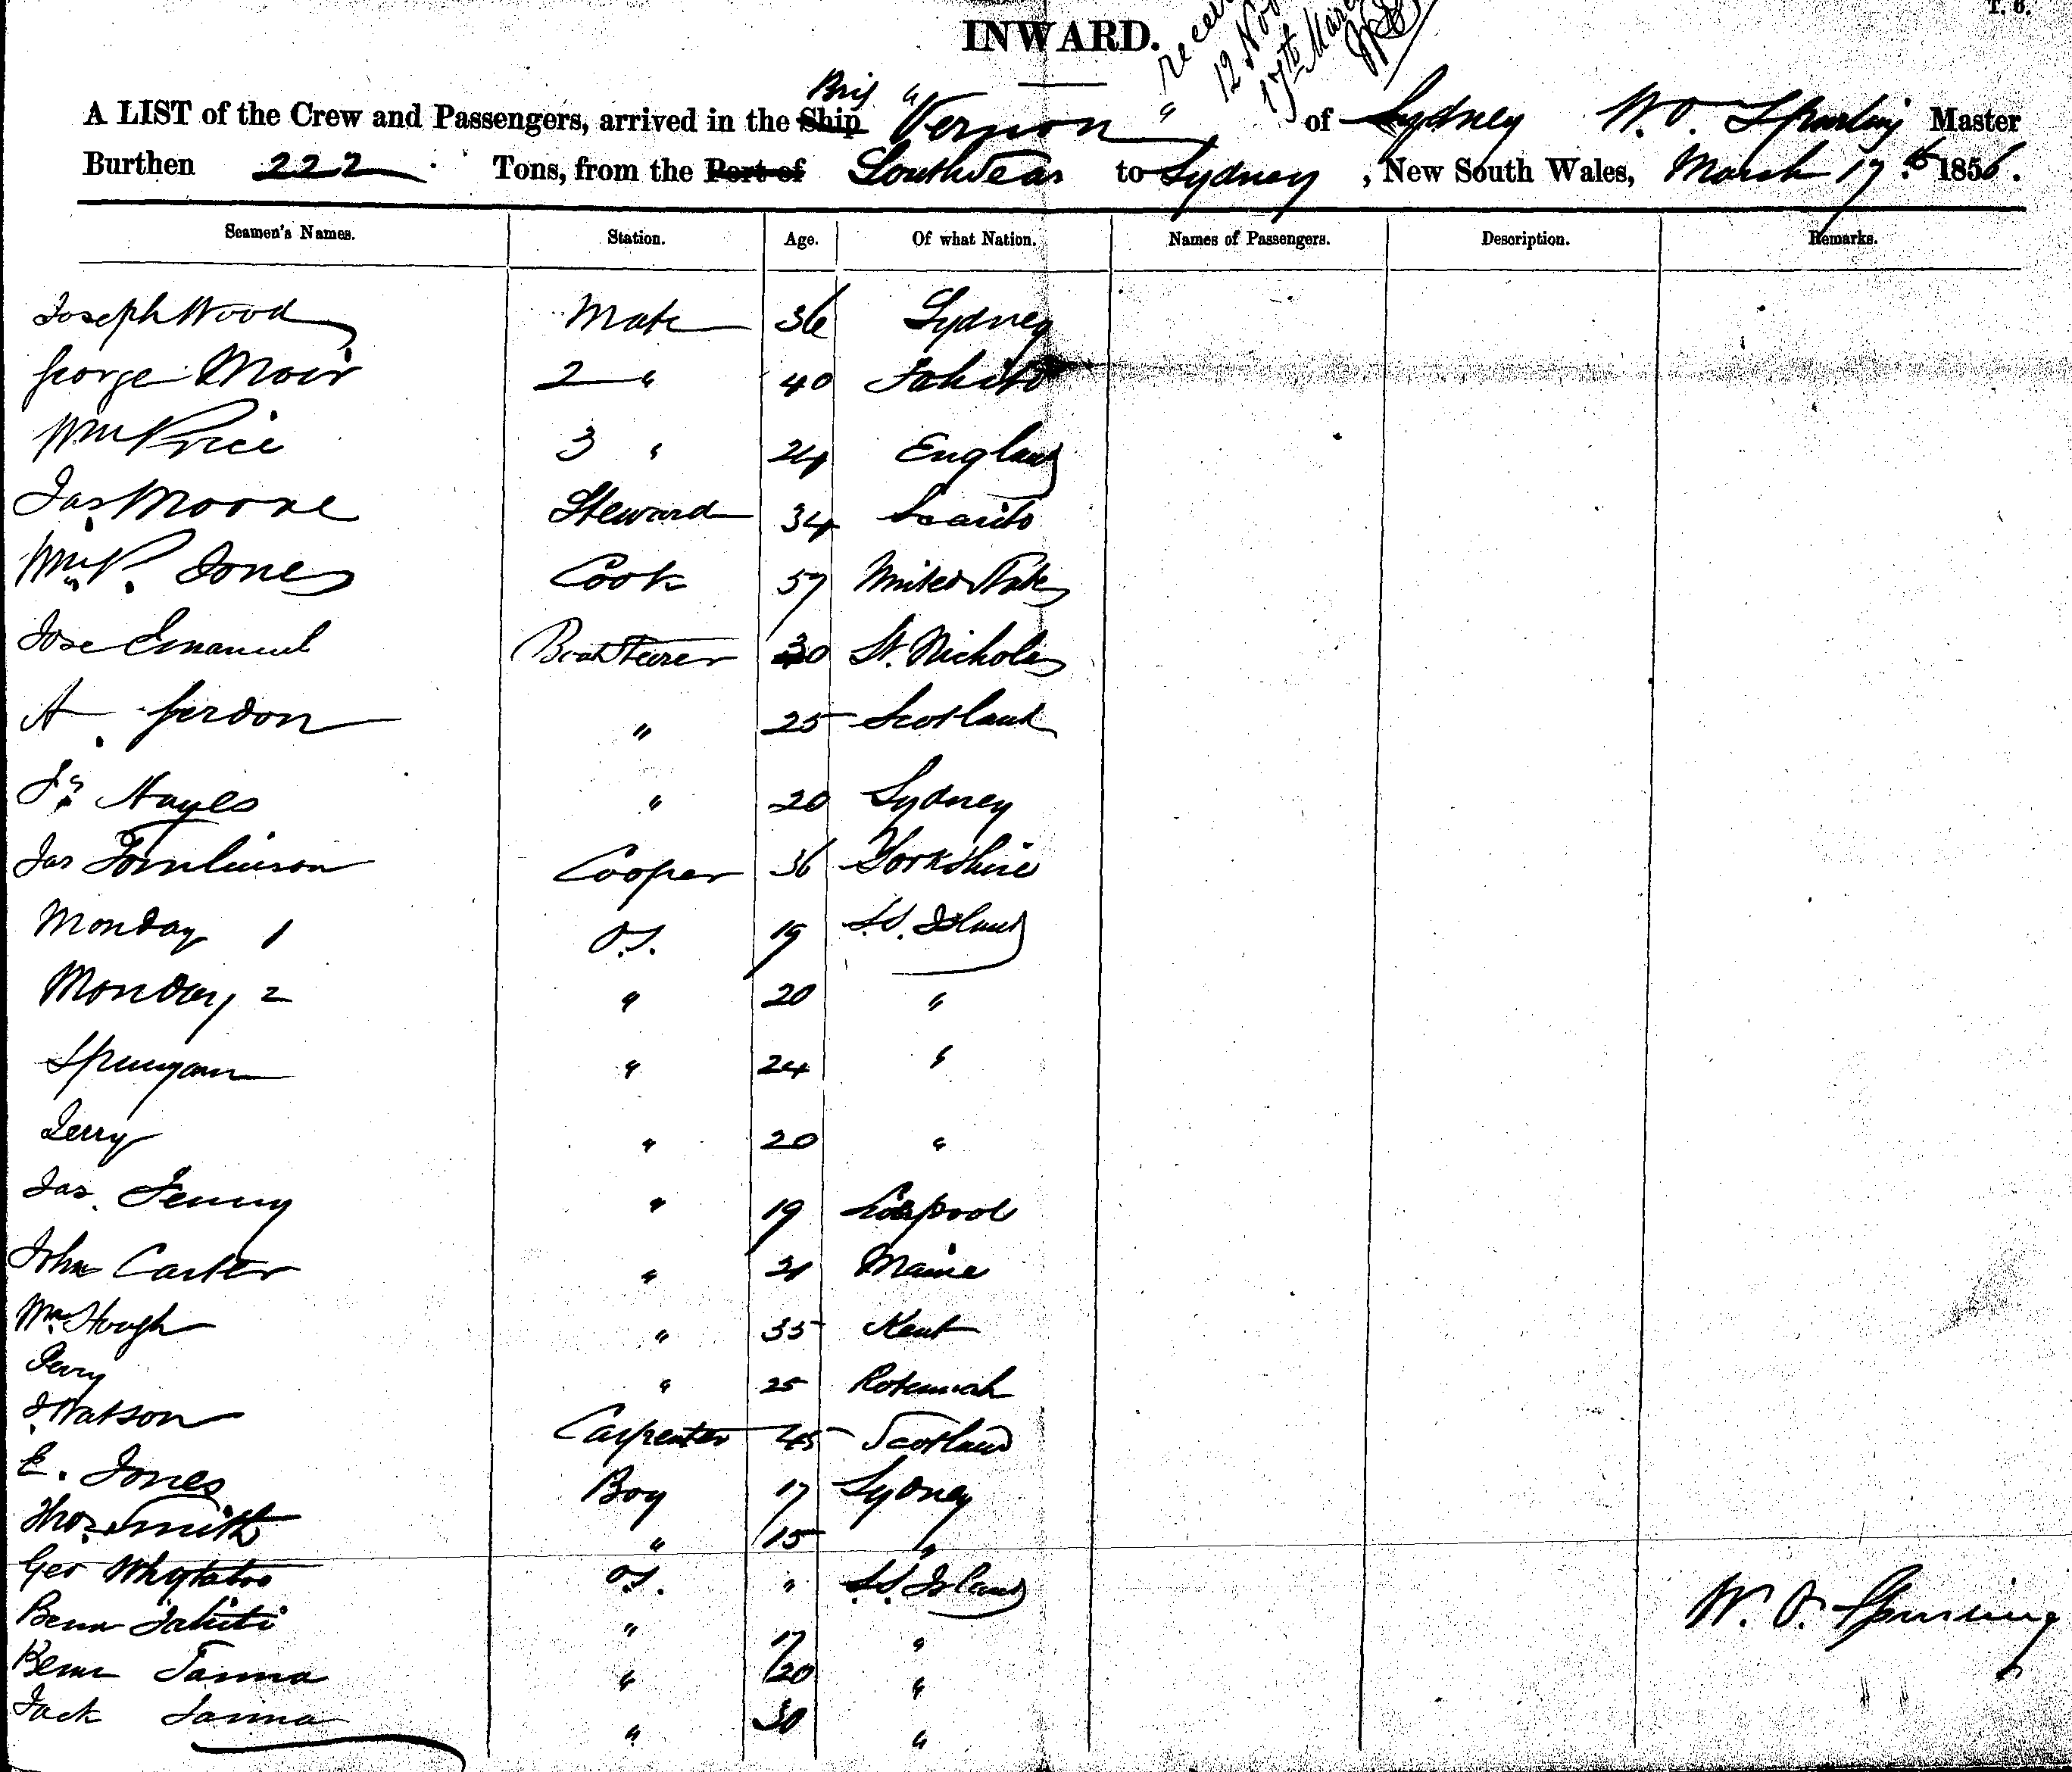 T. 6.
INWARD.
12 Noo
17th Marc
Brig " "
A LIST of the Crew and Passengers, arrived in the Ship Vernon of Sydney W. O. Spurling Master
Burthen 222 Tons, from the Port of South Seas to Sydney, New South Wales, March 17th 1856.
Seamen's Names. Station. Age. Of what Nation. Names of Passengers. Description. Remarks.
Joseph Wood Mate 36 Sydney
George Moir 2 " 40
Wm Price 3 " 24 England
Jas Moore Steward 34
Wm P. Jones Cook 57 United States
Jose Emanuel Boatsteerer 30 St. Nicholas
A. Gordon " 25 Scotland
Hayes " 20 Sydney
Jas Tomlinson Cooper 36 Yorkshire
Monday 1 O.S. 19 S.S. Island
Monday 2 " 20 "
" 24 "
Jerry " 20 "
Jas. " 19
John Carter " 21 Maine
Wm Hough " 35 Kent
" 25 Rotumah
J. Watson Carpenter 45 Scotland
E. Jones Boy 17 Sydney
Thos. Smith " 15 "
Geo O.S. " S.S. Island
Tahiti " 17 "
Tanna " 20 "
Jack Tanna " 30 "
W. O. Spurling